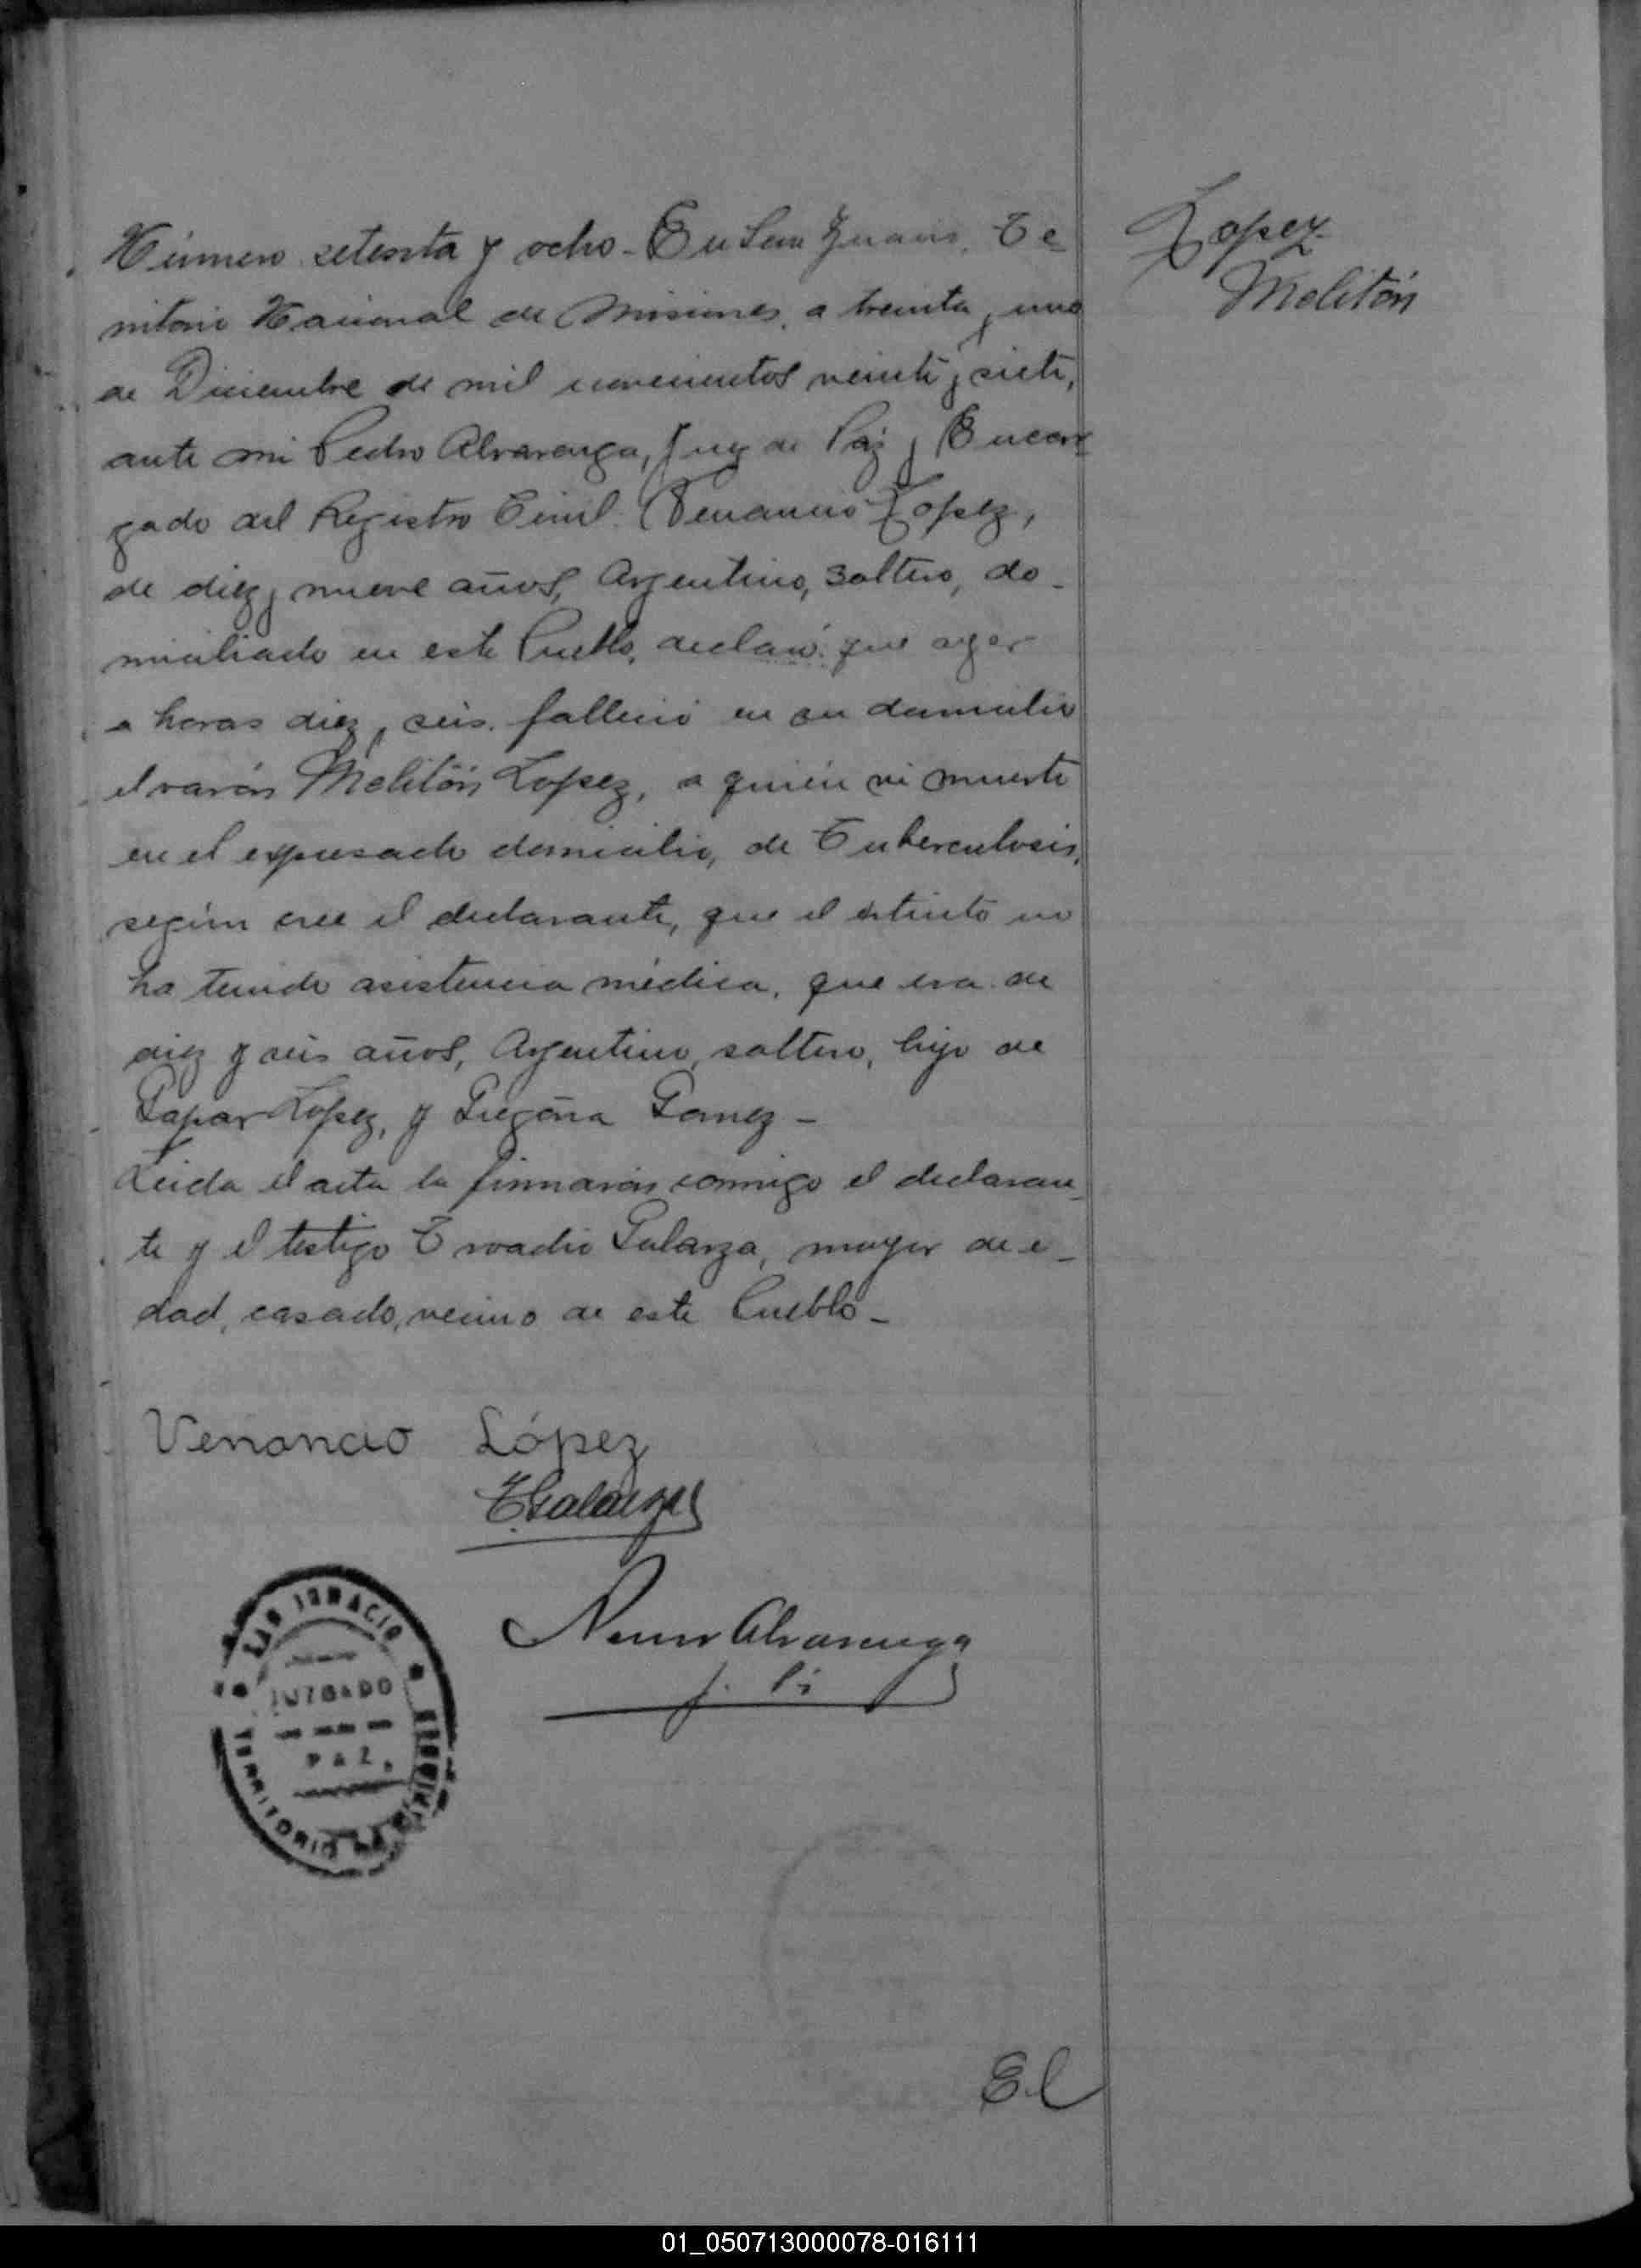 Lopez
Melitón
Número setenta y ocho - En San Ignacio, Te-
rritorio Nacional de Misiones, a treinta y uno
de Diciembre de mil novecientos veinte y siete,
ante mi Pedro Alvarenga, Juez de Paz y Encar-
gado del Registro Civil. Venancio Lopez,
de diez y nueve años, Argentino, soltero, do-
miciliado en este Pueblo, declaró: que ayer
a horas diez y seis. falleció en su domicilio
el varón Melitón Lopez, a quién vi muerto
en el expresado domicilio, de Tuberculosis,
según cree el declarante, que el extinto no
ha tenido asistencia médica, que era de
diez y seis años, Argentino, soltero, hijo de
Lopez, y Gomez -
Leida el acta la firmaron conmigo el declaran-
te y el testigo Galarza, mayor de e-
dad, casado, vecino de este Pueblo -
Venancio López
Galarza
Alvarenga
SAN IGNACIO
JUZGADO
PAZ.
TERRITORIO MISIONES
El
01_050713000078-016111